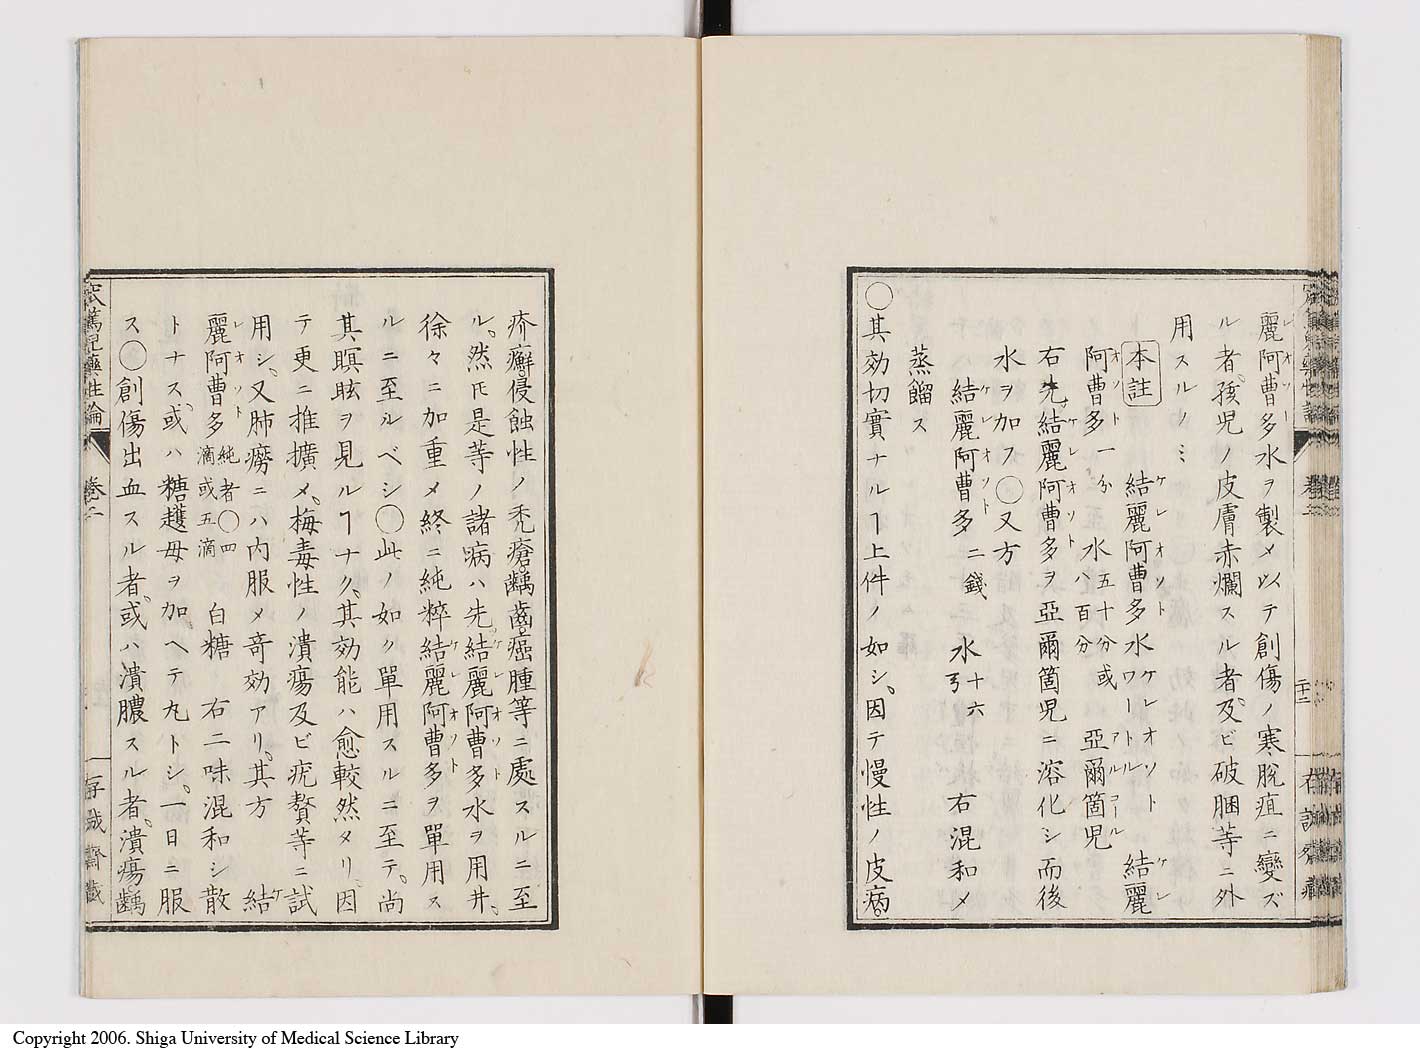 麗阿曹多水ヲ製メ以テ創傷ノ寒脫疽ニ變ズ
ル者、孩児ノ皮膚赤爛スル者、及ビ破膕等ニ外
用スルノミ
本註 結麗阿曹多水ワートルケレオソト 結麗
阿曹多一分 水五十分或八百分 亞爾箇児
右先結麗阿曹多ヲ亞爾箇児ニ溶化シ而後
水ヲ加ス○又方
結麗阿曹多二錢 水十六弓 右混和メ
蒸餾ス
○其効切實ナルヿ上件ノ如シ、因テ慢性ノ皮病、
疥癬、侵蝕性ノ禿瘡、齲齒、癌腫等ニ處スルニ至
ル。然𪜈是等ノ諸病ハ先結麗阿曹多水ヲ用井、
徐々ニ加重メ終ニ純粹結麗阿曹多ヲ單用ス
ルニ至ルベシ○此ノ如ク單用スルニ至テ、尚
其瞑眩ヲ見ルヿナク、其効能ハ愈較然タリ、因
テ更ニ推擴メ、梅毒性ノ潰瘍及ビ疣贅等ニ試
用シ、又肺癆ニハ内服メ竒効アリ。其方 結
麗阿曹多純者○四滴或五滴 白糖 右二味混和シ散
トナス、或ハ糖趕母ヲ加ヘテ丸トシ。一日ニ服
ス○創傷出血スル者、或ハ潰膿スル者、潰瘍齲
窊篤児藥性論 卷二
存誠齋藏
Copyright 2006. Shiga University of Medical Science Library